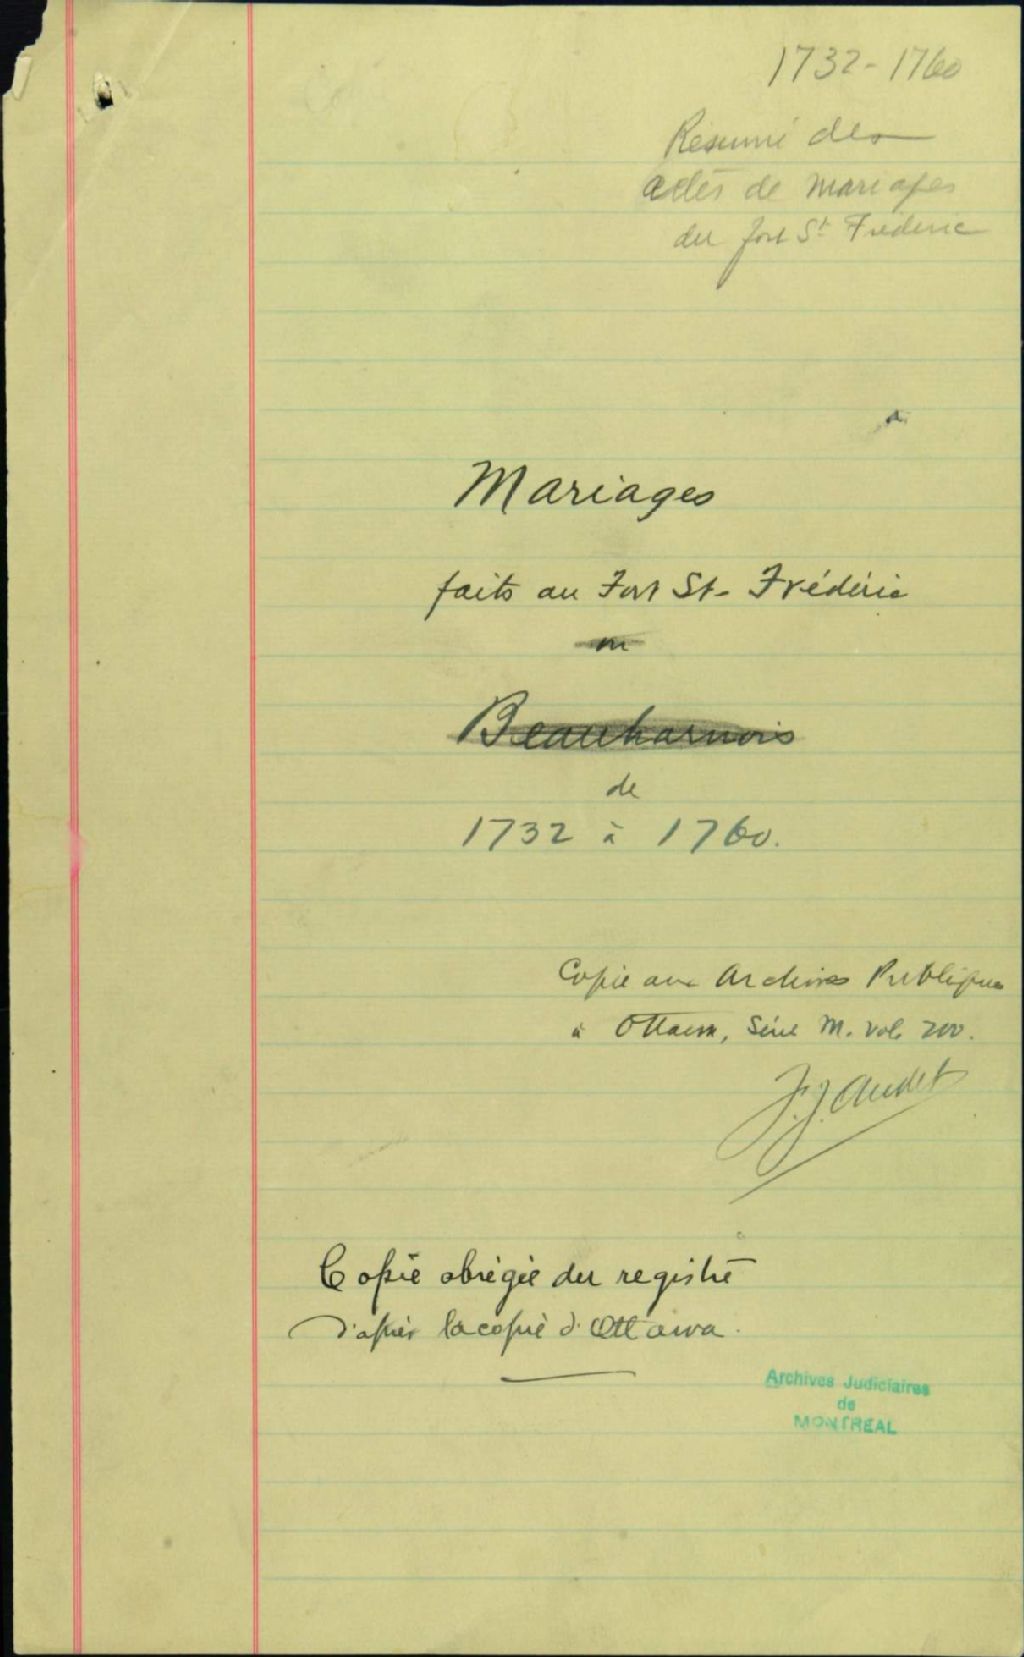 1732-1760
Résumé des
actes de mariages
du fort St Frédéric
Mariages
faits au Fort St. Frédéric
ou
Beauharnois
de
1732 à 1760.
Copie aux Archives Publiques
à Ottawa, Série M. vol. 200.
F. J. Audet
Copie abrégée du registre
d'après la copie d'Ottawa.
Archives Judiciaires
de
MONTREAL